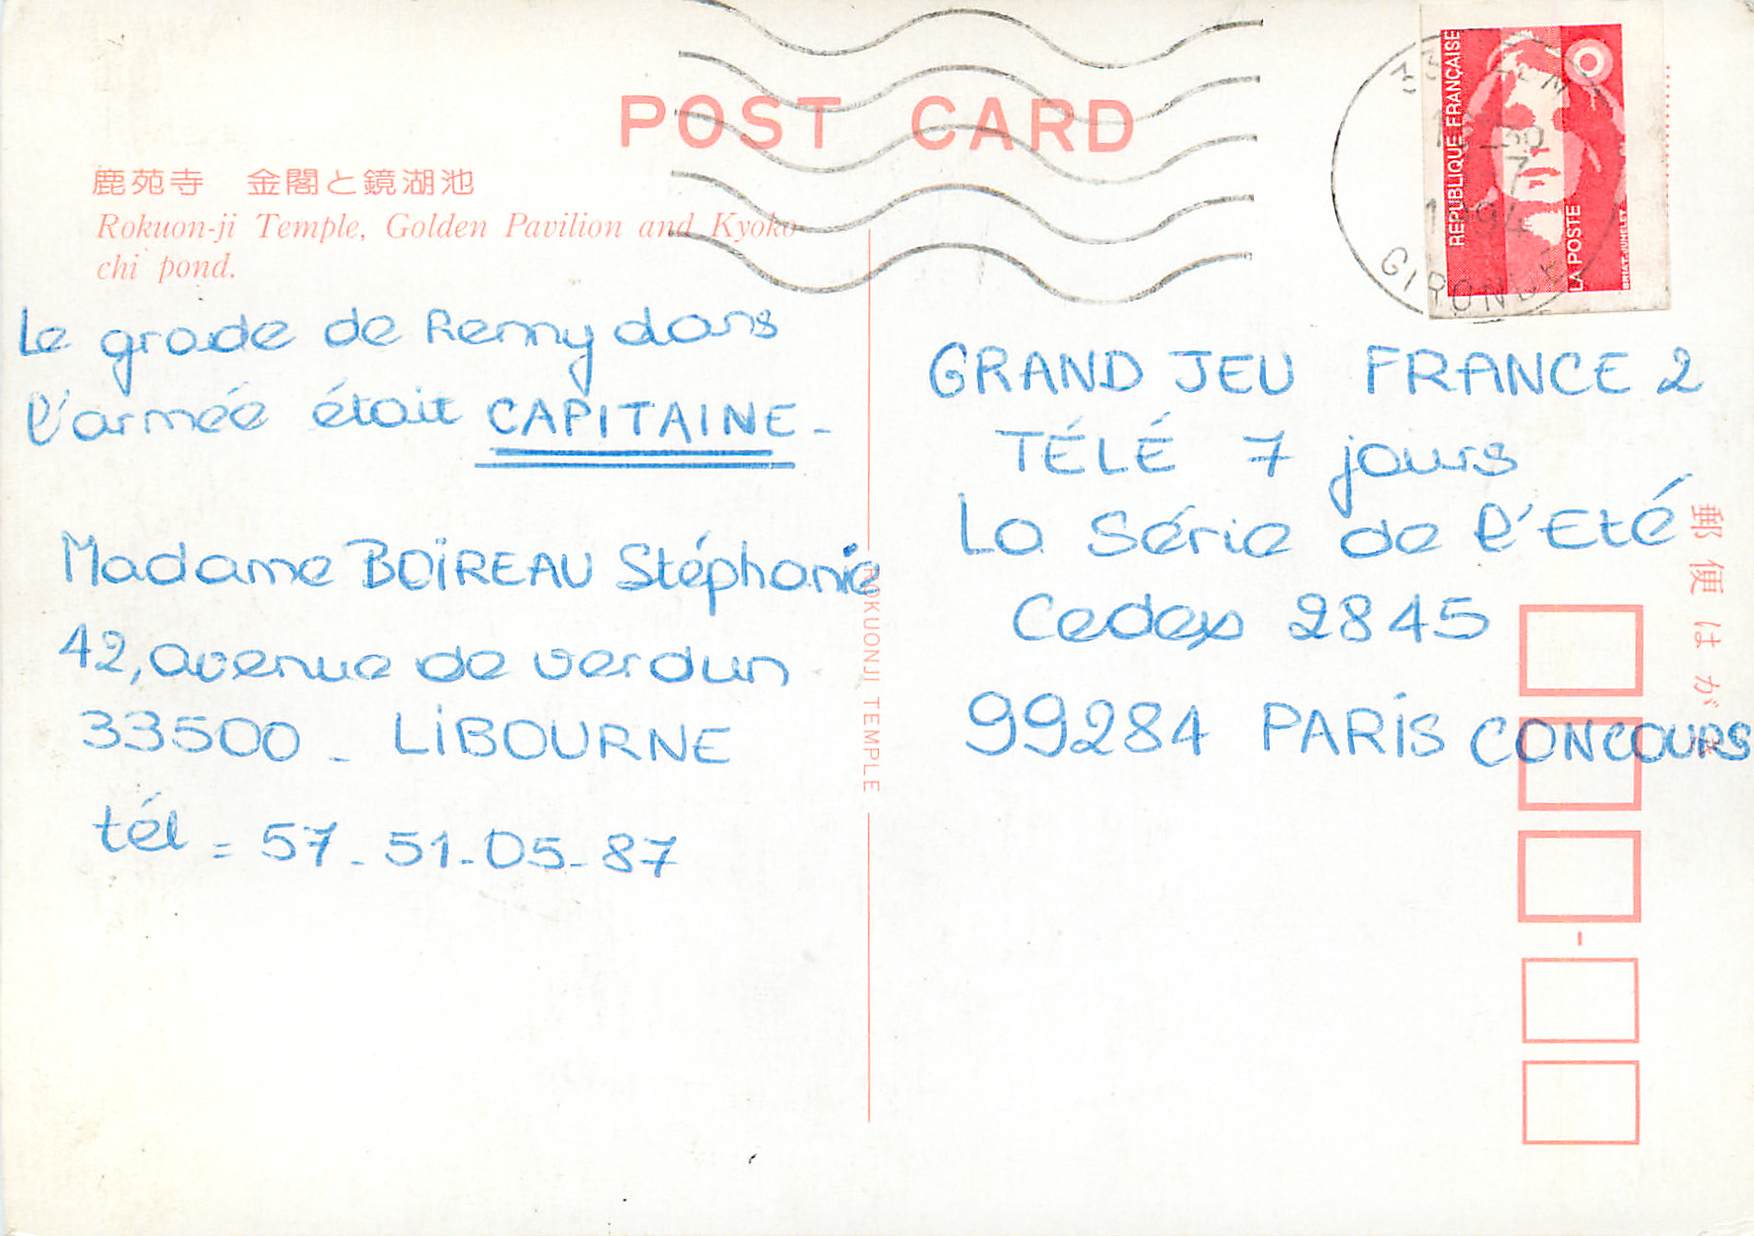 POST CARD
鹿苑寺 金閣と鏡湖池
Rokuon-ji Temple, Golden Pavilion and Kyoko-
chi pond.
Le grade de Remy dans
l'armée était CAPITAINE -
Madame BOIREAU Stéphanie
42, avenue de verdun
33500 - LIBOURNE
tél = 57-51-05-87
ROKUONJI TEMPLE
REPUBLIQUE FRANÇAISE
LA POSTE
BRIAT-JUMELET
1994
GIRONDE
GRAND JEU FRANCE 2
TÉLÉ 7 jours
La Série de l'Eté
Cedex 2845
99284 PARIS CONCOURS
郵便はがき